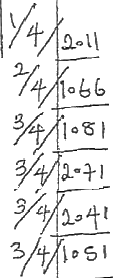 1/4/ 2011
2/4/ 1066
3/4/ 1081
3/4/ 2071
3/4/ 2041
3/4/ 1051